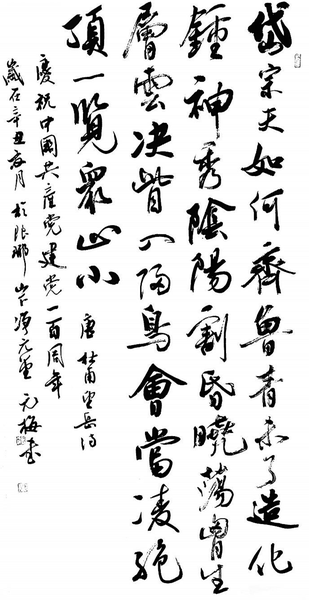 岱宗夫如何齊魯青未了造化
鍾神秀陰陽割昏曉蕩胷生
層雲決眥入歸鳥會當凌絶
頂一覽衆山小
唐杜甫望岳詩
慶祝中國共産党建党一百周年
歲在辛丑月於琅琊山下元書